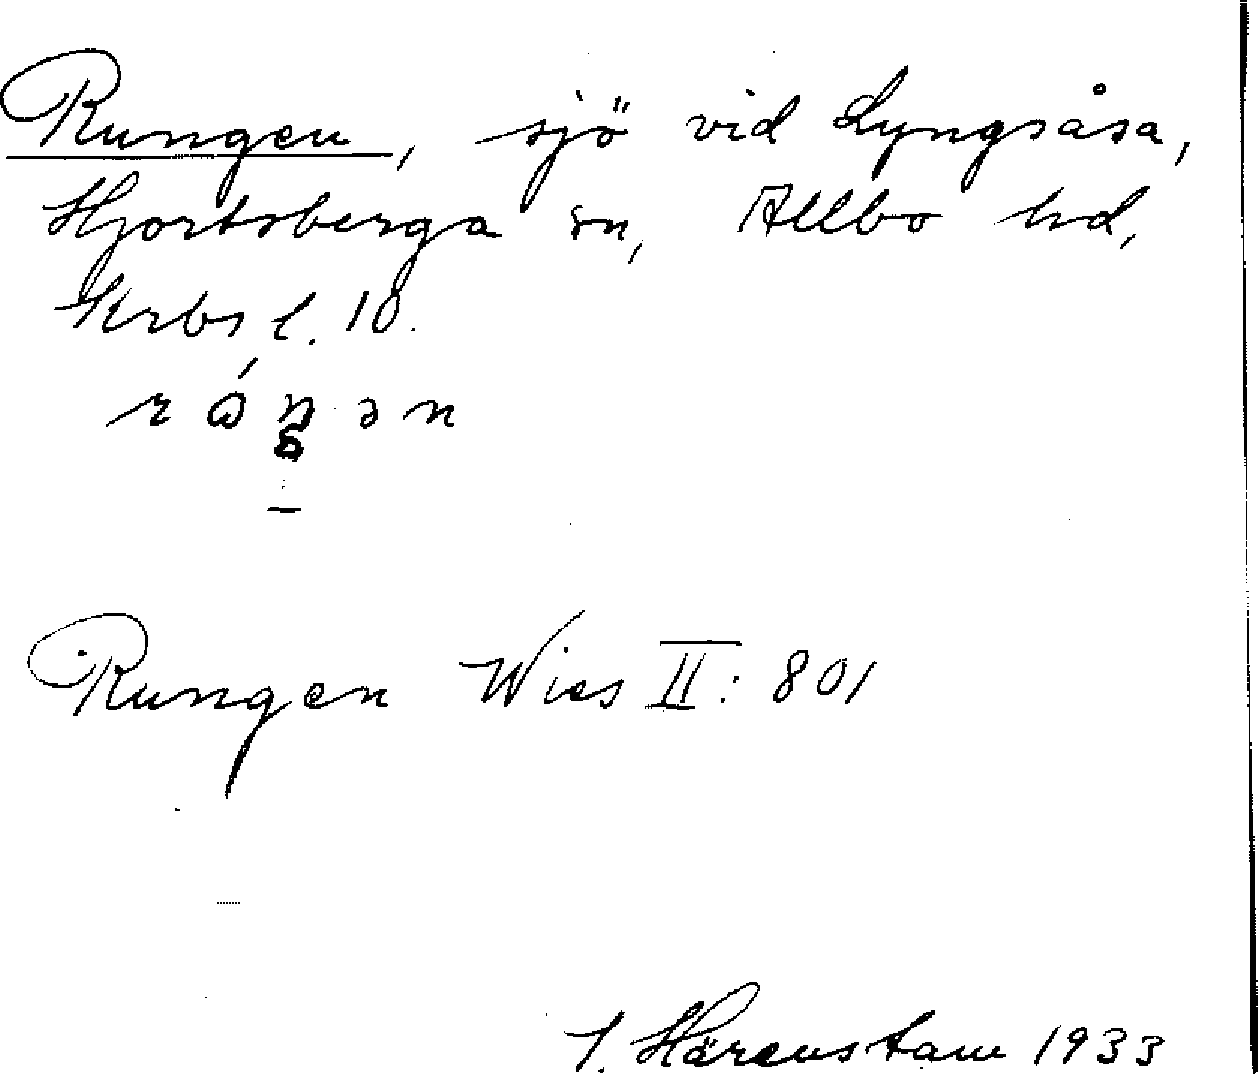 Rungen, sjö vid Lyngsåsa,
Hjortsberga sn, Allbo hd,
Krbs l. 10.
Rungen Wies II: 801
J. Härenstam 1933